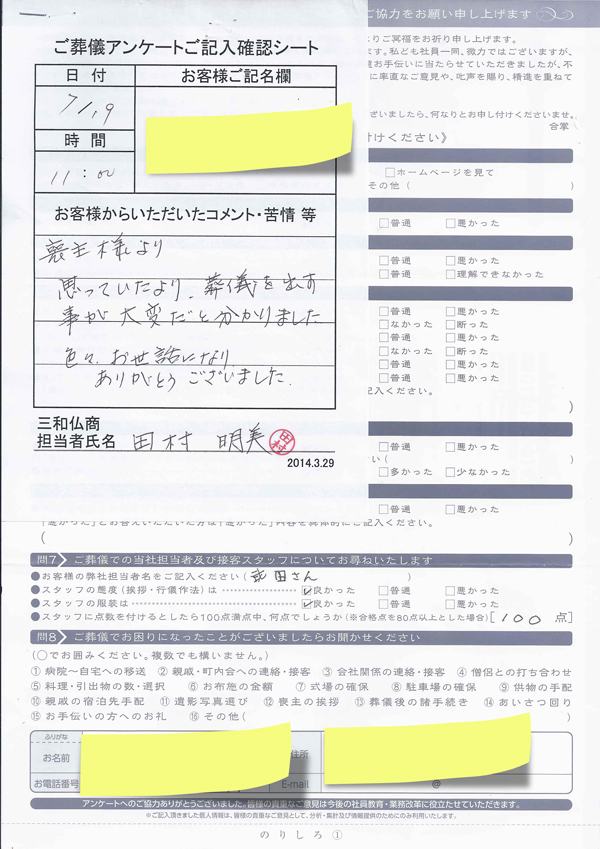 ご協力をお願い申し上げます
ご葬儀アンケートご記入確認シート
日付
お客様ご記名欄
7/19
時間
11:00
お客様からいただいたコメント・苦情 等
喪主様より
思っていたより、葬儀を出す
事が大変だと分かりました
色々、お世話になり
ありがとうございました。
三和仏商
担当者氏名 田村 明美 田村
2014.3.29
りご冥福をお祈り申し上げます。
ます。私ども社員一同、微力ではございますが、
お手伝いに当たらせていただきましたが、不
に率直なご意見や、叱声を賜り、精進を重ねて
ざいましたら、何なりとお申し付けくださいませ。
合掌
付けください》
□ホームページを見て
その他( )
□普通 □悪かった
□普通 □悪かった
□普通 □理解できなかった
□普通 □悪かった
□なかった □断った
□普通 □悪かった
□なかった □断った
□普通 □悪かった
□普通 □悪かった
記入ください。
)
□普通 □悪かった
い( )
□多かった □少なかった
□普通 □悪かった
「悪かった」とお答えいただいた方は「悪かった」内容を具体的にご記入ください。
( )
問7 ご葬儀での当社担当者及び接客スタッフについてお尋ねいたします
●お客様の弊社担当者名をご記入ください( 武田さん )
●スタッフの態度(挨拶・行儀作法)は ☑良かった □普通 □悪かった
●スタッフの服装は ☑良かった □普通 □悪かった
●スタッフに点数を付けるとしたら100点満点中、何点でしょうか(※合格点を80点以上とした場合)[ 100 点]
問8 ご葬儀でお困りになったことがございましたらお聞かせください
(○でお囲みください。複数でも構いません。)
①病院〜自宅への移送 ②親戚・町内会への連絡・接客 ③会社関係の連絡・接客 ④僧侶との打ち合わせ
⑤料理・引出物の数・選択 ⑥お布施の金額 ⑦式場の確保 ⑧駐車場の確保 ⑨供物の手配
⑩親戚の宿泊先手配 ⑪遺影写真選び ⑫喪主の挨拶 ⑬葬儀後の諸手続き ⑭あいさつ回り
⑮お手伝いの方へのお礼 ⑯その他( )
ふりがな
お名前
住所
お電話番号
E-mail
@
アンケートへのご協力ありがとうございました。皆様の貴重なご意見は今後の社員教育・業務改革に役立たせていただきます。
※ご記入頂きました個人情報は、皆様の貴重なご意見として、分析・集計及び情報提供のためにのみ利用いたします。
のりしろ①